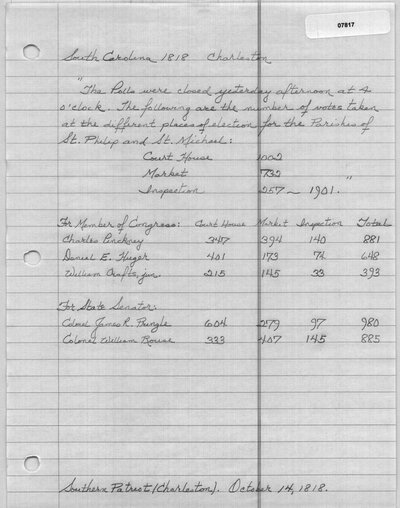 07817
South Carolina 1818 Charleston
"The Polls were closed yesterday afternoon at 4
o'clock. The following are the number of votes taken
at the different places of election for the Parishes of
St. Philip and St. Michael:
Court House 1002
Market 732
Inspection 257 ~ 1901. "
For Member of Congress: Court House Market Inspection Total
Charles Pinckney 347 394 140 881
Daniel E. Huger 401 173 74 648
William Crafts, jun. 215 145 33 393
For State Senator:
Colonel James R. Pringle 604 279 97 980
Colonel William Rouse 333 407 145 885
Southern Patriot (Charleston). October 14, 1818.